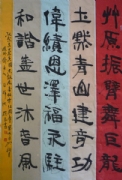 艸原振臂舞巨龍
土默青山建奇功
偉績恩澤福永駐
和諧盛世沐春風